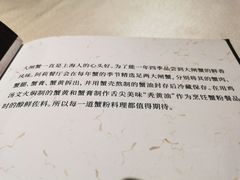 大闸蟹一直是上海人的心头好，为了能一年四季品尝到大闸蟹的鲜香
风味，阿莉餐厅会在每年蟹的季节精选足两大闸蟹，分别将其的蟹肉、
蟹腿、蟹膏、蟹黄拆出，并用蟹壳熬制的蟹油封存后冷藏保存。在用鸡
汤文火焖制的蟹黄和蟹膏制作舌尖美味“秃黄油”作为烹饪蟹粉餐品
时的醇鲜佐料，所以每一道蟹粉料理都值得期待。